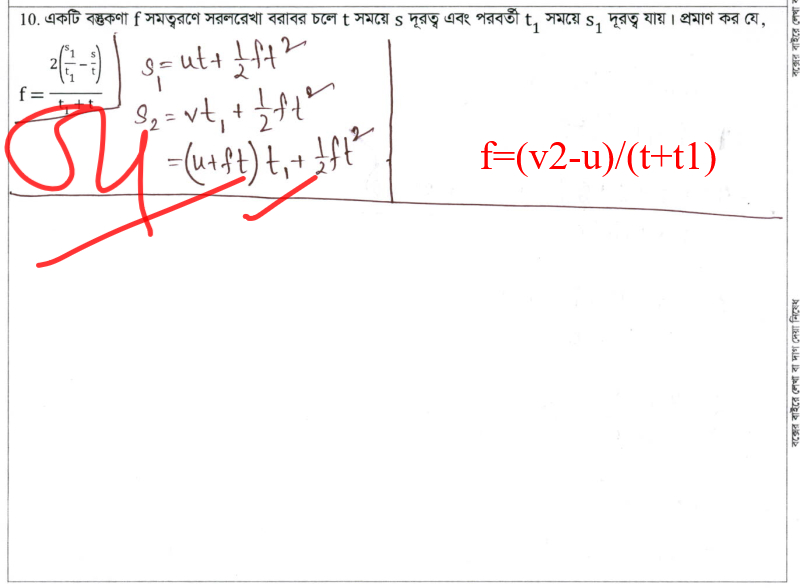 10. একটি বস্তুকণা f সমত্বরণে সরলরেখা বরাবর চলে t সময়ে s দূরত্ব এবং পরবর্তী t₁ সময়ে s₁ দূরত্ব যায়। প্রমাণ কর যে,
f = 2(s₁/t₁ − s/t)/(t₁ + t)
s₁ = ut + ½ft²
s₂ = vt₁ + ½ft²
= (u+ft) t₁ + ½ft²
f=(v2-u)/(t+t1)